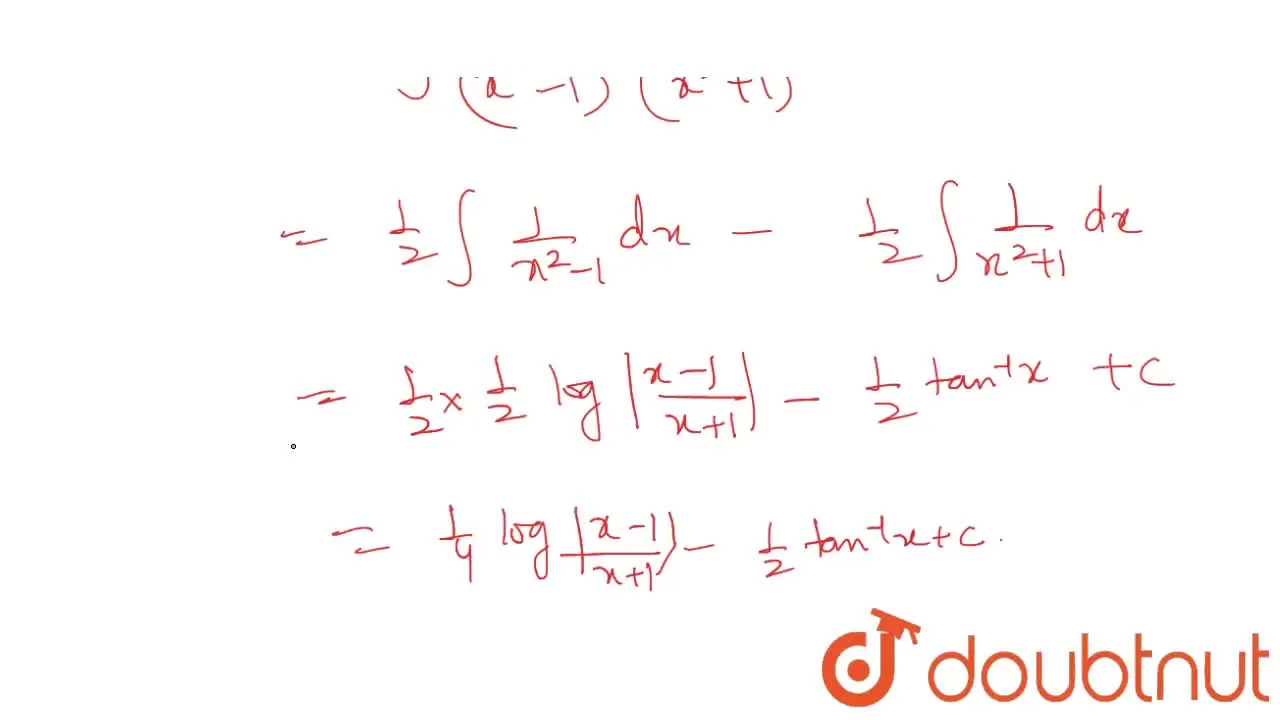 ∫ (x² - 1) (x² + 1)
= 1/2 ∫ 1/(x²-1) dx - 1/2 ∫ 1/(x²+1) dx
= 1/2 × 1/2 log |(x-1)/(x+1)| - 1/2 tan⁻¹x + c
= 1/4 log |(x-1)/(x+1)| - 1/2 tan⁻¹x + c.
doubtnut